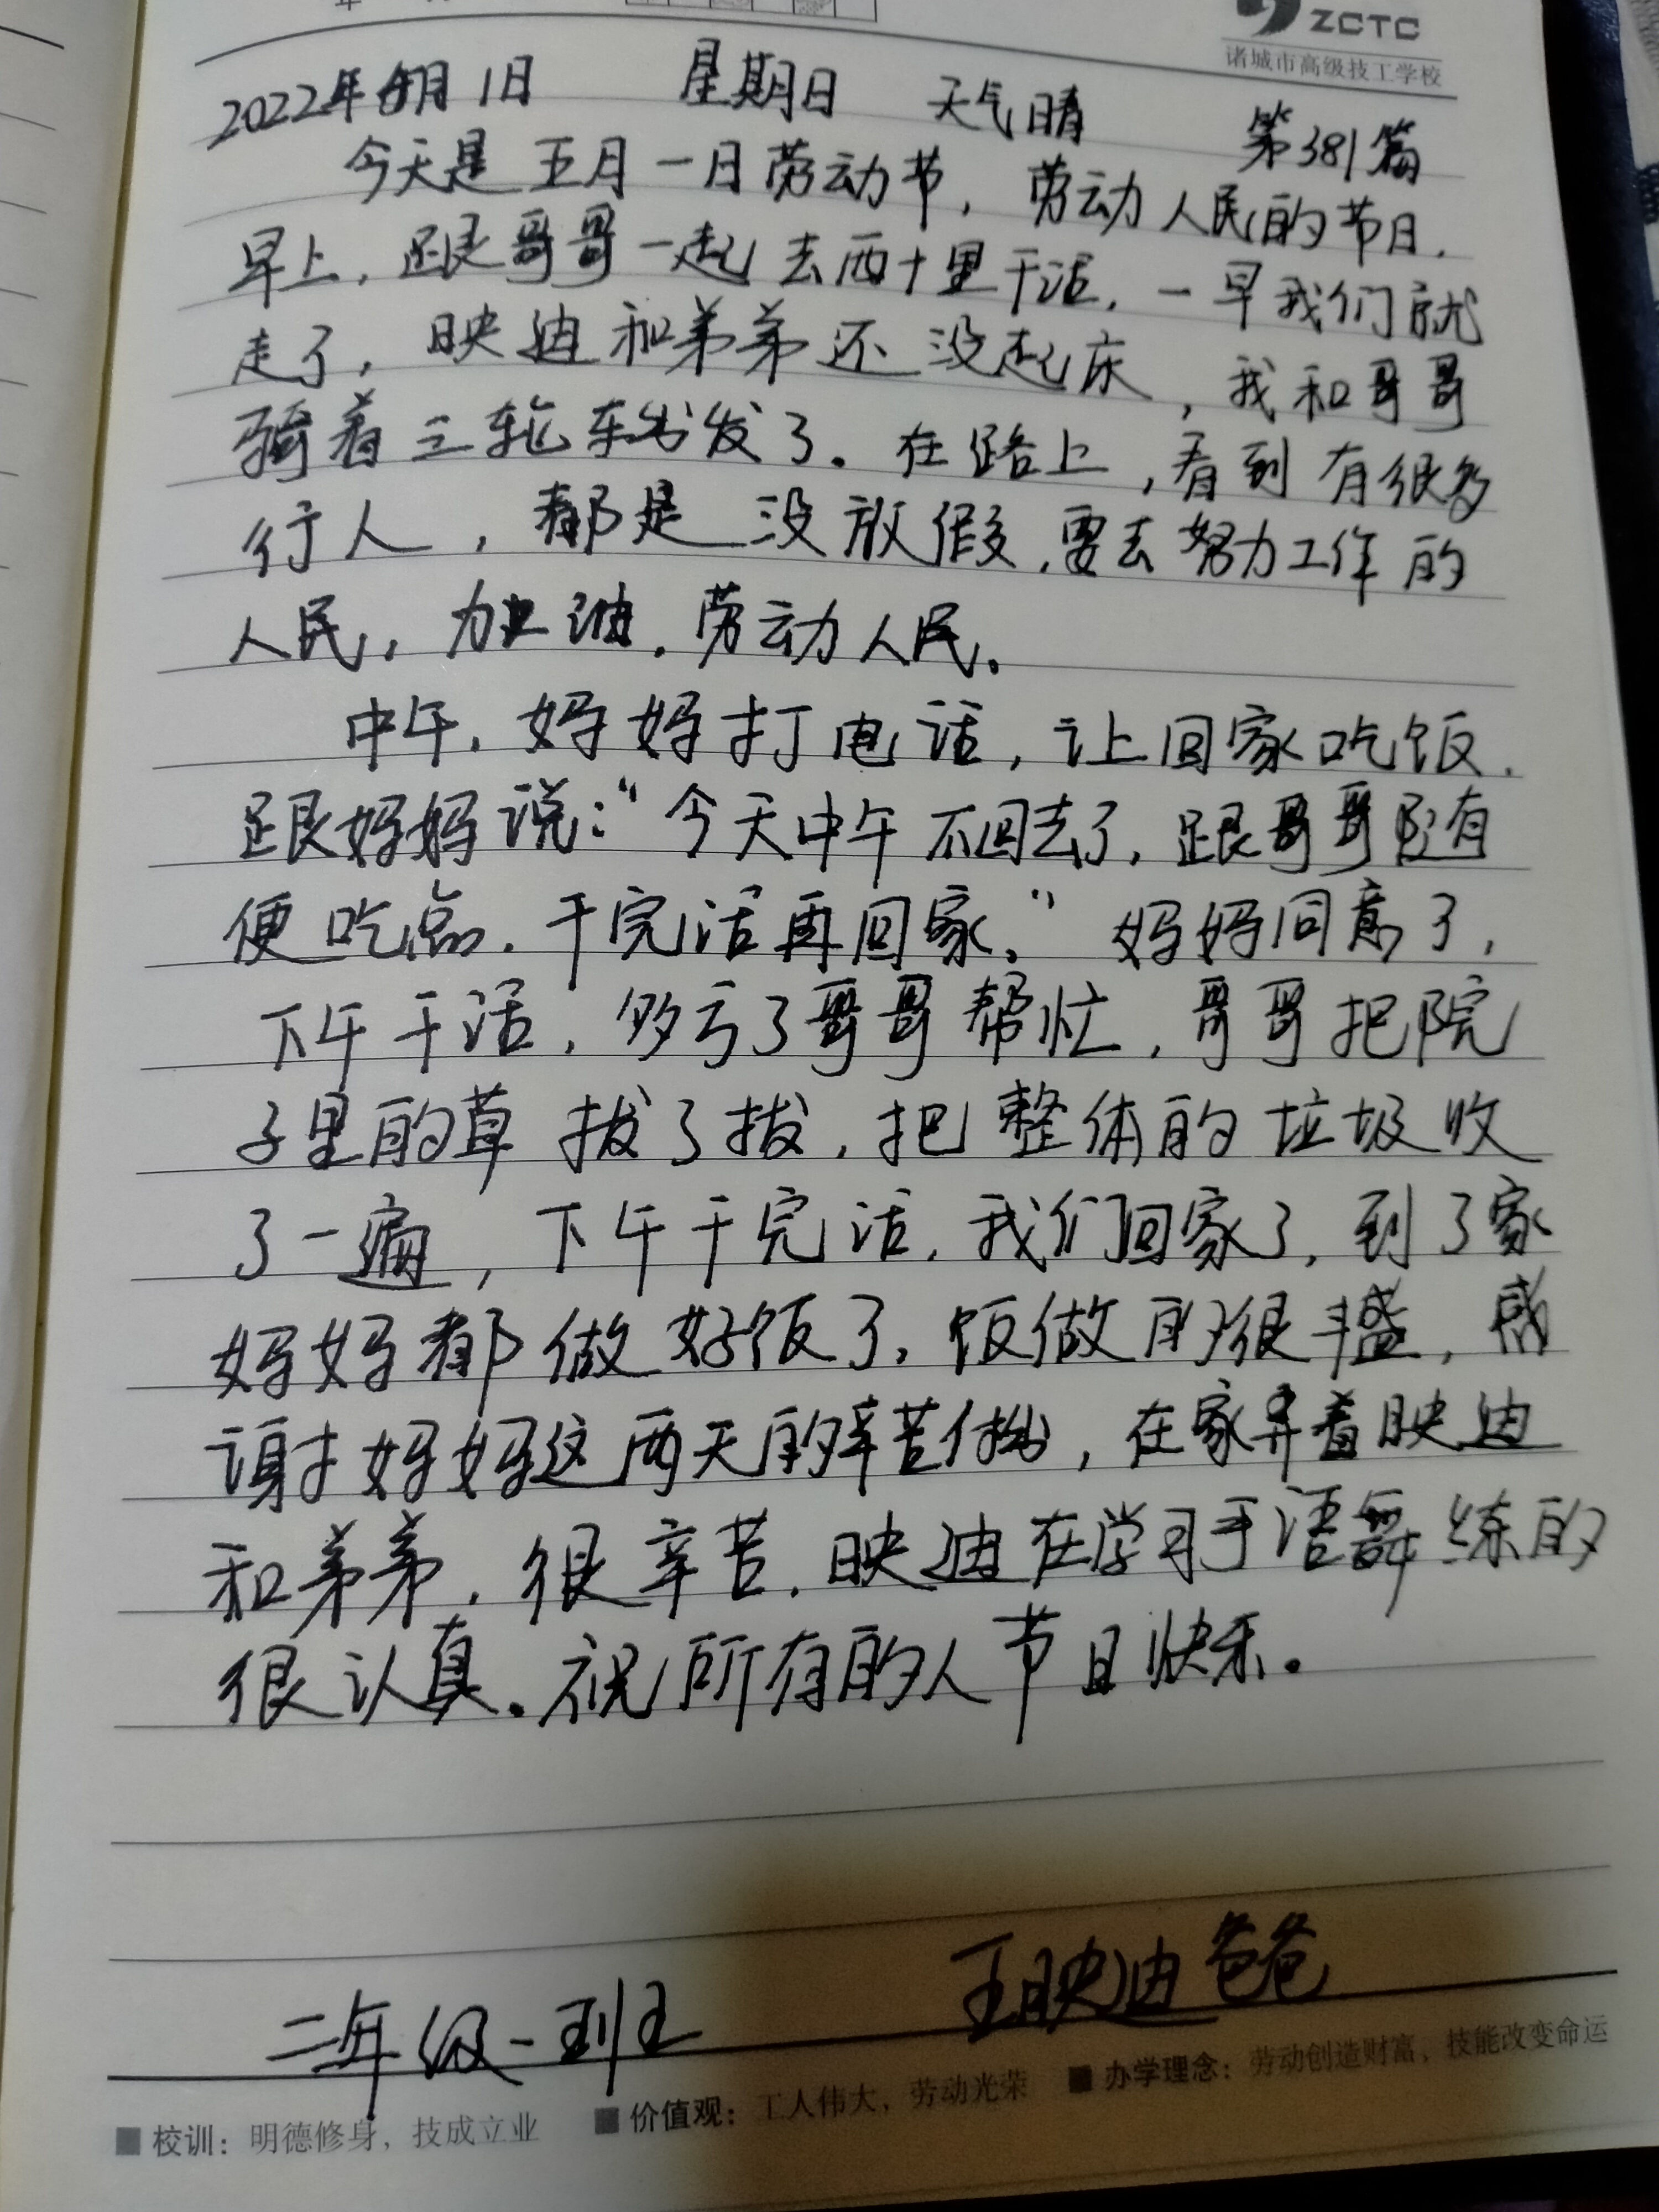 ZCTC
诸城市高级技工学校
2022年5月1日 星期日 天气晴 第381篇
今天是五月一日劳动节，劳动人民的节日.
早上，跟哥哥一起去西十里干活，一早我们就
走了，映迪和弟弟还没起床，我和哥哥
骑着三轮车出发了。在路上，看到有很多
行人，都是没放假，要去努力工作的
人民，加油，劳动人民。
中午，妈妈打电话，让回家吃饭.
跟妈妈说：“今天中午不回去了，跟哥哥随
便吃点，干完活再回家。”妈妈同意了，
下午干活，多亏了哥哥帮忙，哥哥把院
子里的草拔了拔，把整体的垃圾收
了一遍，下午干完活，我们回家了，到了家
妈妈都做好饭了，饭做的很丰盛，感
谢妈妈这两天的辛苦付出，在家弄着映迪
和弟弟，很辛苦，映迪在学习手语舞练的
很认真。祝所有的人节日快乐。
二年级一班 王映迪爸爸
■ 校训：明德修身，技成立业 ■ 价值观：工人伟大，劳动光荣 ■ 办学理念：劳动创造财富，技能改变命运